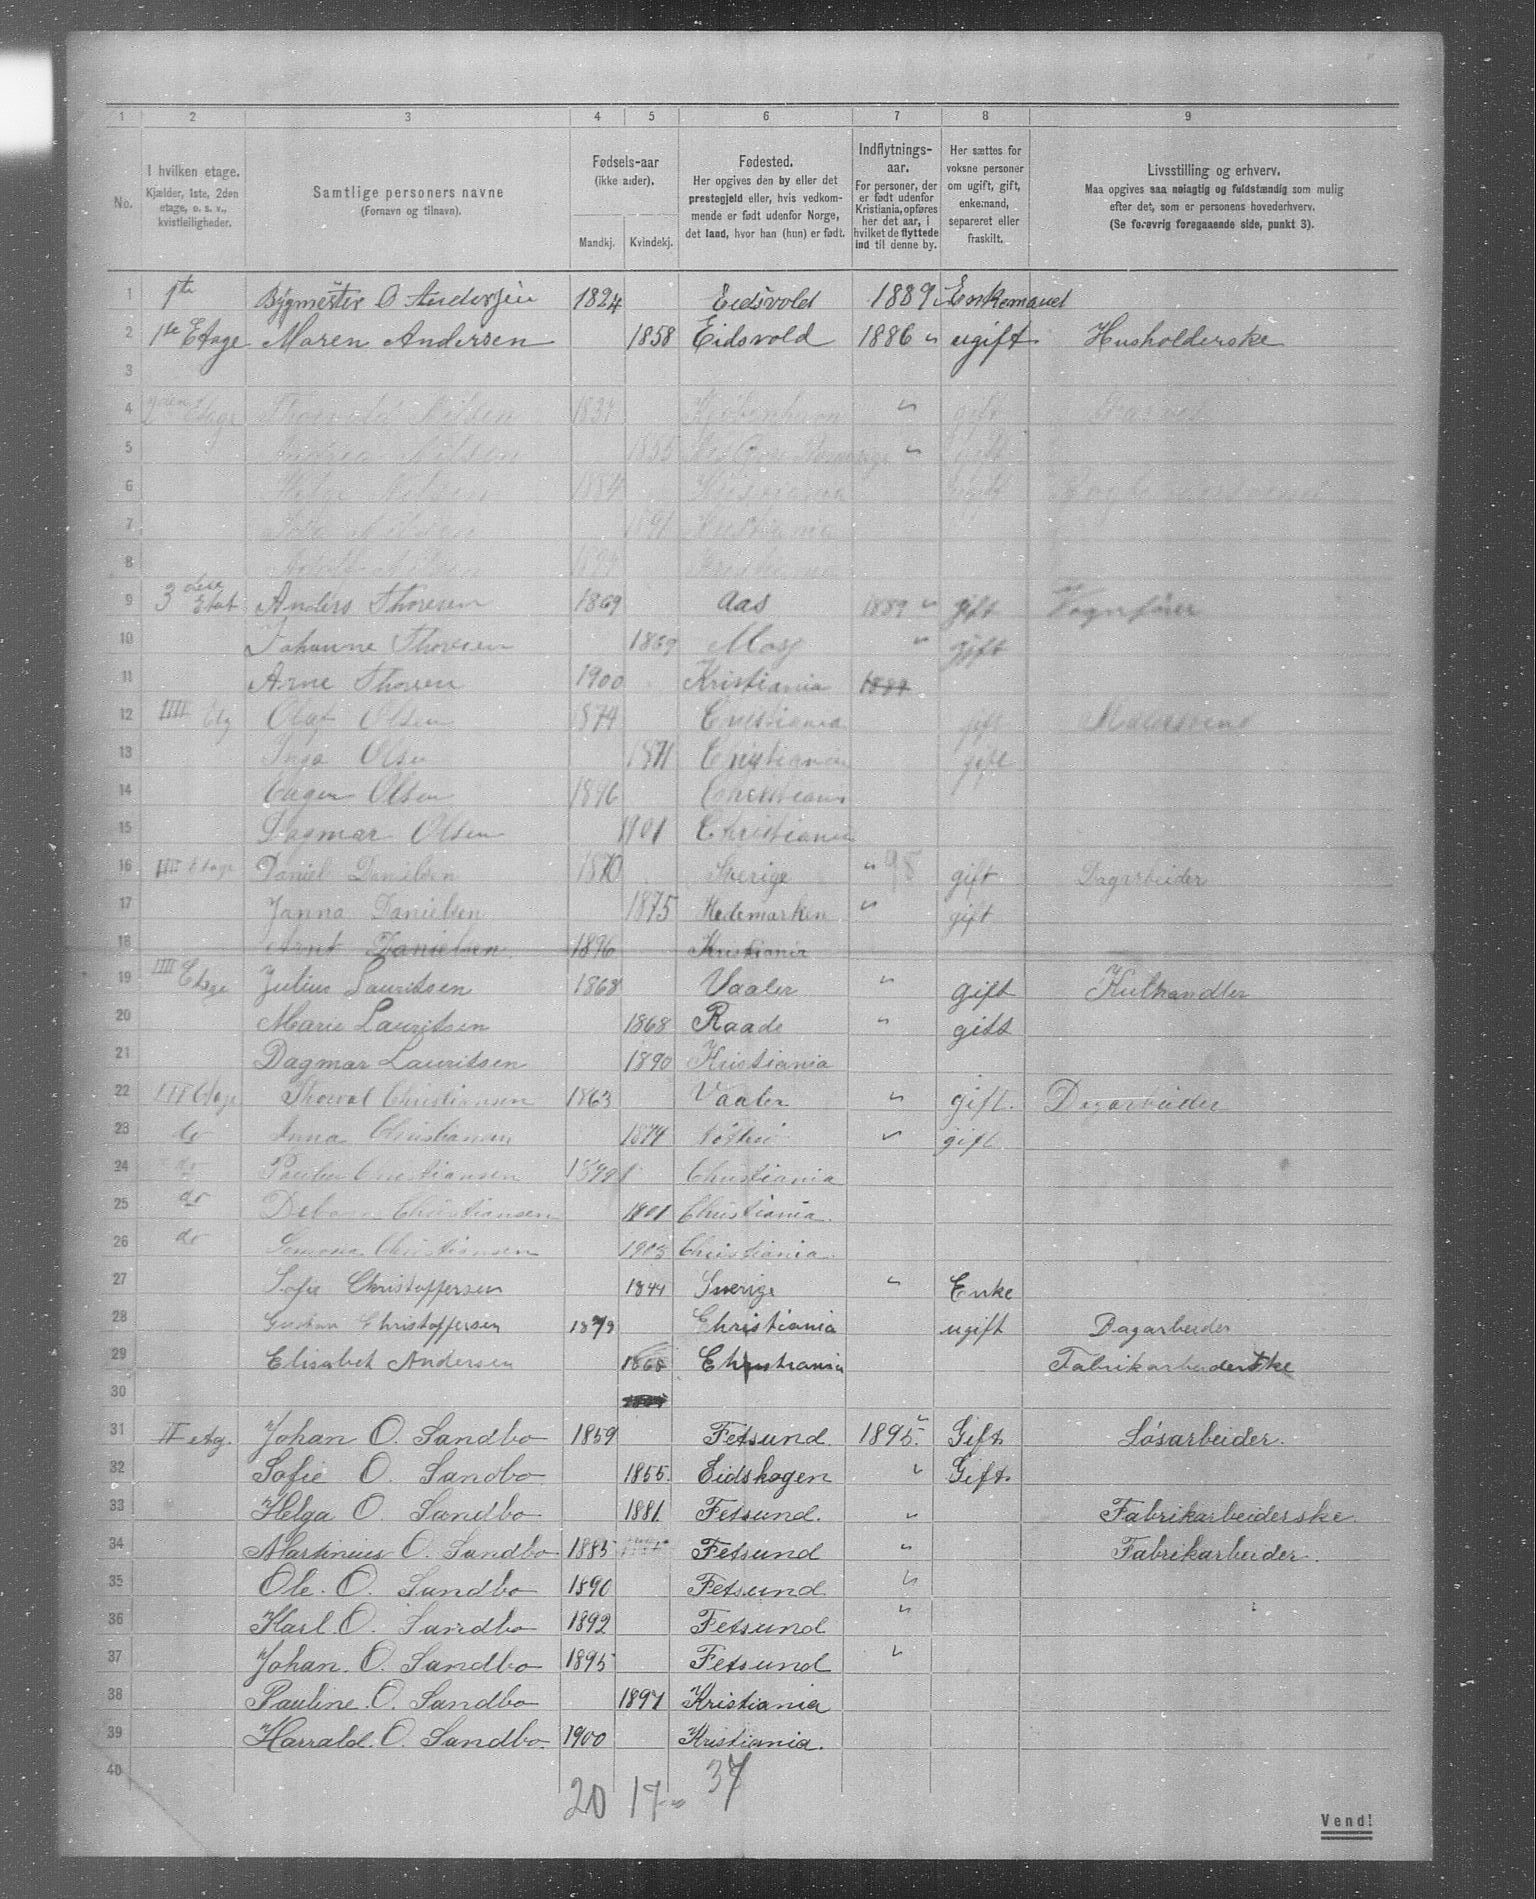 1 2 3 4 5 6 7 8 9
No.
I hvilken etage.
Kjælder, 1ste, 2den
etage, o. s. v.,
kvistleiligheder.
Samtlige personers navne
(Fornavn og tilnavn).
Fødsels-aar
(ikke alder).
Mandkj. Kvindekj.
Fødested.
Her opgives den by eller det
prestegjeld eller, hvis vedkom-
mende er født udenfor Norge,
det land, hvor han (hun) er født.
Indflytnings-
aar.
For personer, der
er født udenfor
Kristiania, opføres
her det aar, i
hvilket de flyttede
ind til denne by.
Her sættes for
voksne personer
om ugift, gift,
enkemand,
separeret eller
fraskilt.
Livsstilling og erhverv.
Maa opgives saa nøiagtig og fuldstændig som mulig
efter det, som er personens hovederhverv.
(Se forøvrig foregaaende side, punkt 3).
1 1te Bygmester O Andersen 1824 Eidsvold 1889 Enkemand
2 1te Etage Maren Andersen 1858 Eidsvold 1886 " ugift Husholderske
3
4 Etage Thorvald Nilsen Kjøbenhavn " gift
5 Nilsen 1855 " gift
6 Nilsen 1884 Kristiania
7 Nilsen Kristiania
8 Nilsen Kristiania
9 3 die Etat Anders Thoresen 1869 Aas 1889 " gift Vognfører
10 Johanne Thoresen 1869 Moss " gift
11 Arne Thoresen 1900 Kristiania
12 IIII Etg Olaf Olsen 1874 Cristiania gift Malersvend
13 Inga Olsen 1871 Cristiania gift
14 Olsen 1896
15 Dagmar Olsen 1901 Christiania
16 IIII Etage Daniel Danielsen 1870 Sverige " 98 gift Dagarbeider
17 Janna Danielsen 1875 Hedemarken " gift
18 Arnt Danielsen 1896 Kristiania
19 IIII Etage Julius Lauritsen 1868 Vaaler " gift Kulhandler
20 Marie Lauritsen 1868 Raade " gift
21 Dagmar Lauritsen 1890 Kristiania
22 Etage Thorval Christiansen 1863 Vaaler " gift. Dagarbeider
23 do Anna Christiansen 1874 " gift
24 do Christiansen Christiania
25 do Christiansen Christiania.
26 do Christiansen 1903 Christiania.
27 Sofie Christoffersen 1844 Sverige " Enke
28 Gustav Christoffersen 1879 Christiania ugift Dagarbeider
29 Elisabet Andersen 1868 Christiania Fabrikarbeiderske
30
31 II etg. Johan O. Sandbo 1859 Fetsund 1895. " Gift Løsarbeider.
32 Sofie O. Sandbo 1855. Eidskogen " Gift.
33 Helga O. Sandbo 1881. Fetsund. " Fabrikarbeiderske.
34 Martinius O. Sandbo 1885 Fetsund " Fabrikarbeider.
35 Ole. O. Sandbo 1890 Fetsund "
36 Karl O. Sandbo 1892 Fetsund "
37 Johan. O. Sandbo 1895 Fetsund "
38 Pauline. O. Sandbo 1897 Kristiania
39 Harrald. O. Sandbo. 1900 Kristiania.
40
20 17 = 37
Vend!